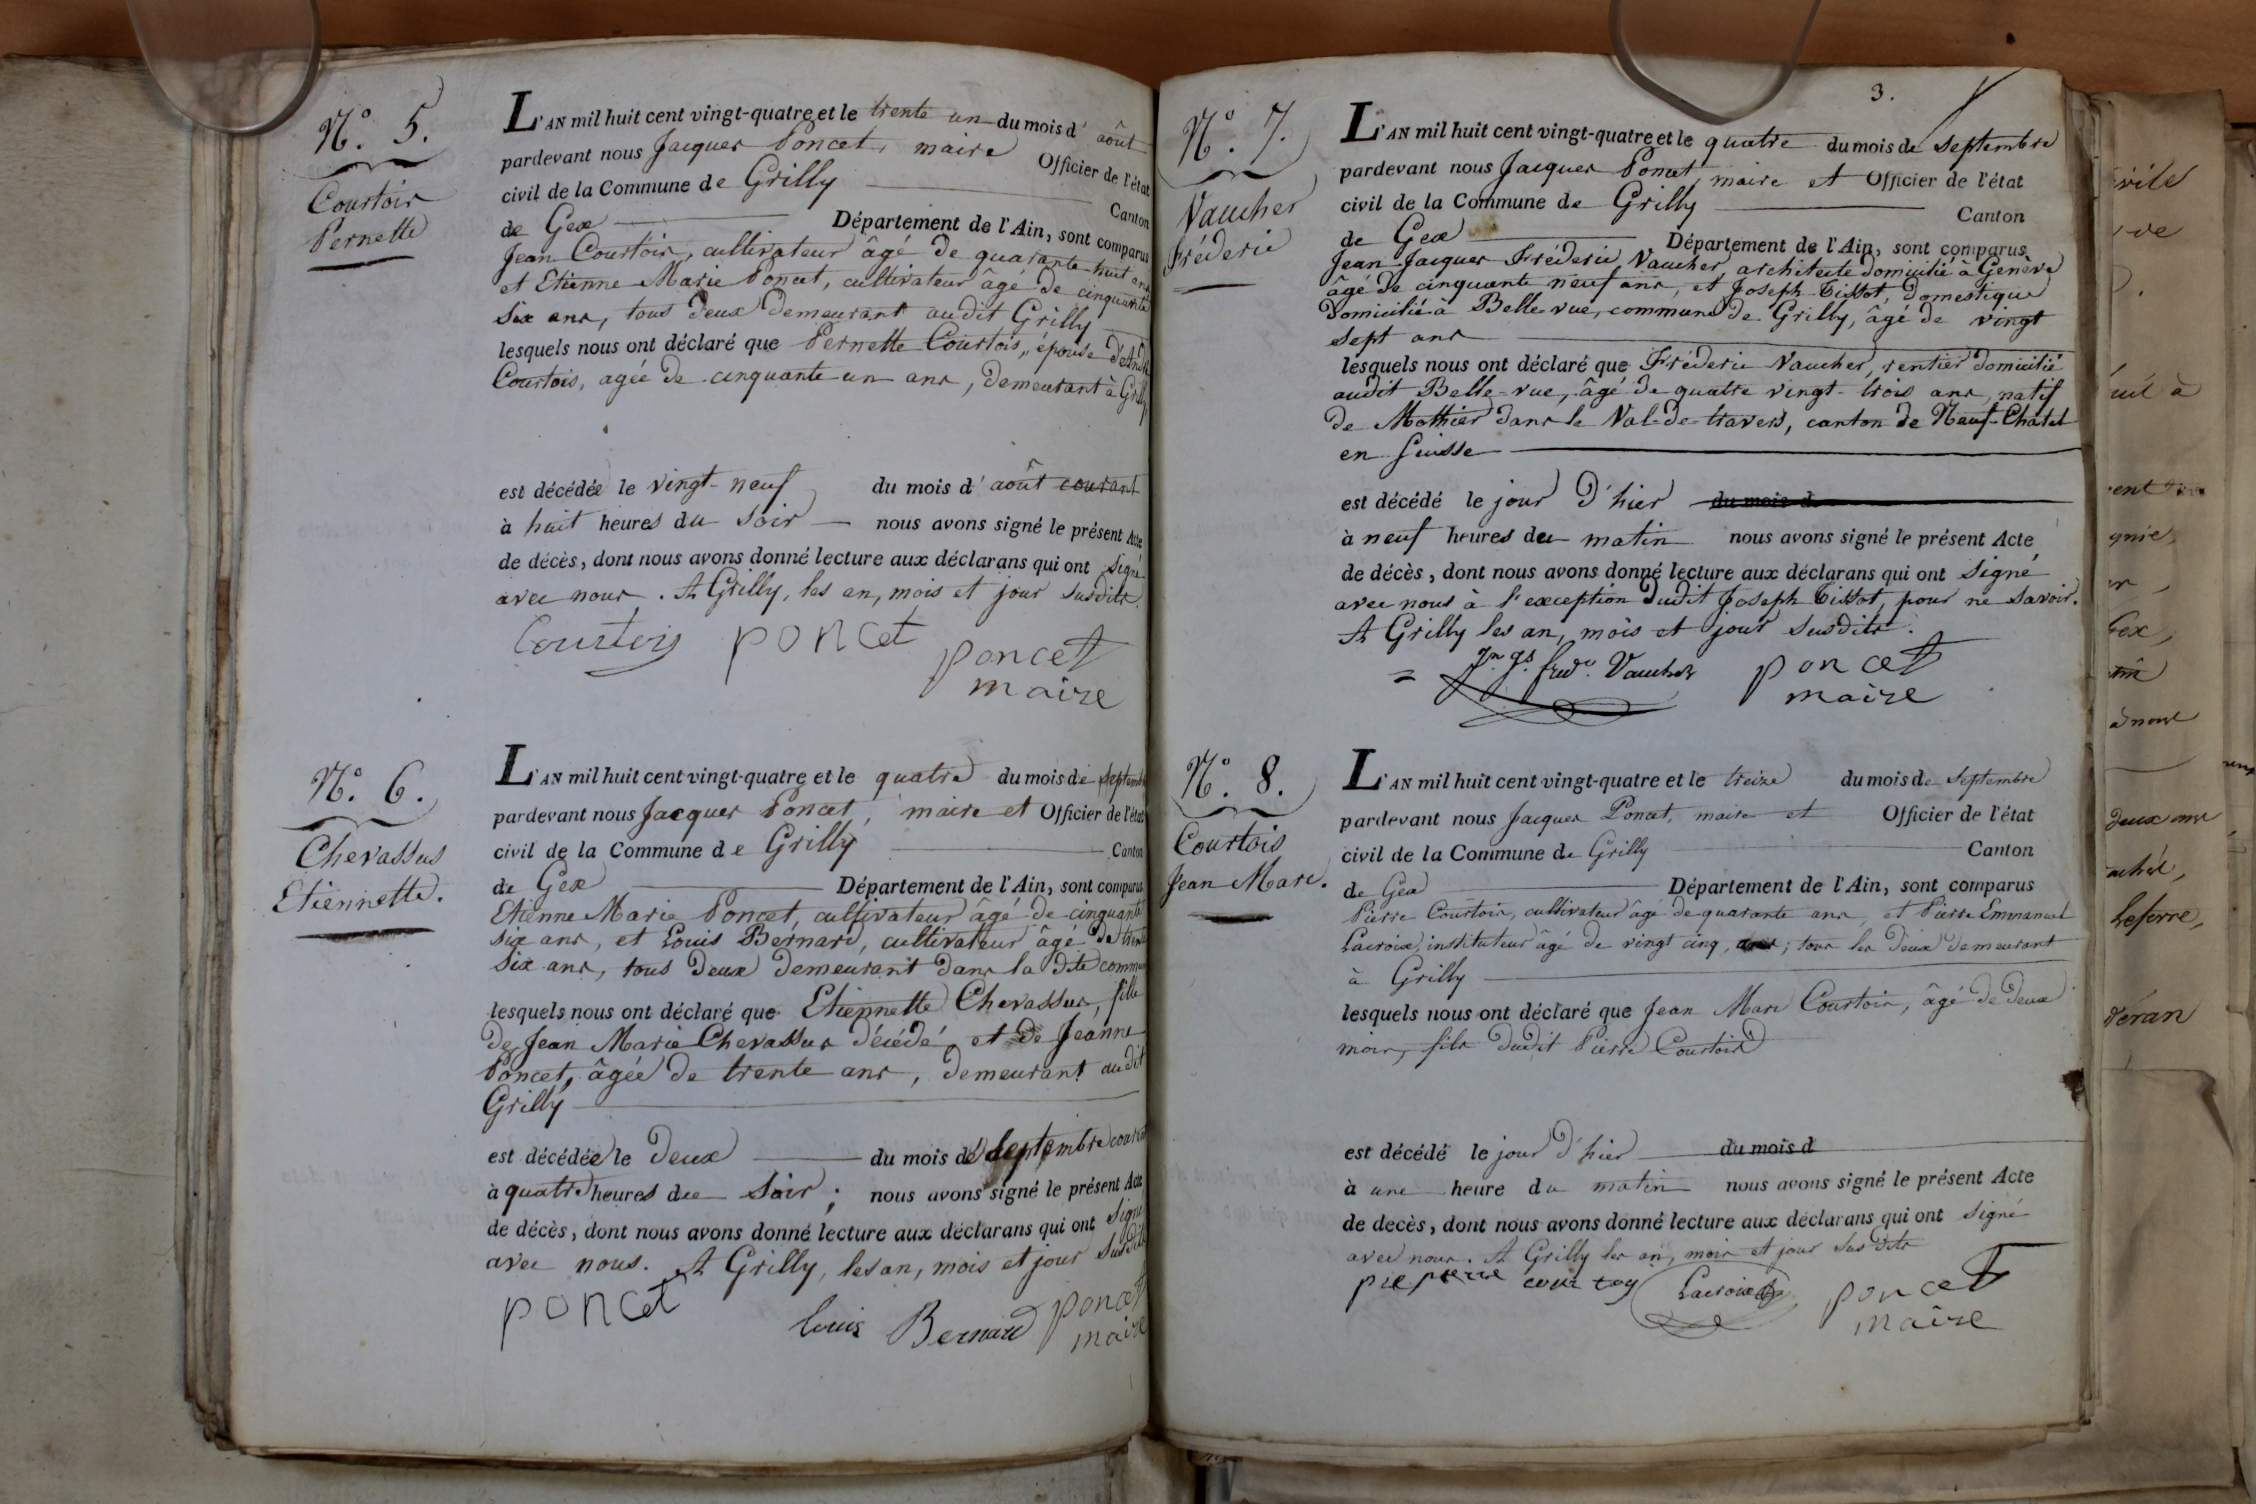 N.° 5.
Courtois
Pernette
L'AN mil huit cent vingt-quatre et le trente un du mois d'août
pardevant nous Jacques Poncet, maire Officier de l'état
civil de la Commune de Grilly Canton
de Gex Département de l'Ain, sont comparus
Jean Courtois, cultivateur âgé de quarante-huit ans
et Etienne Marie Poncet, cultivateur âgé de cinquante
six ans, tous deux demeurant audit Grilly
lesquels nous ont déclaré que Pernette Courtois, épouse d'André
Courtois, agée de cinquante un ans, demeurant à Grilly
est décédée le vingt-neuf du mois d'août courant
à huit heures du soir nous avons signé le présent Acte
de décès, dont nous avons donné lecture aux déclarans qui ont signé
avec nous. A Grilly, les an, mois et jour susdits.
Courtois poncet poncet
maire
N.° 6.
Chevassus
Etiennette.
L'AN mil huit cent vingt-quatre et le quatre du mois de septembre
pardevant nous Jacques Poncet, maire et Officier de l'état
civil de la Commune de Grilly Canton
de Gex Département de l'Ain, sont comparus
Etienne Marie Poncet, cultivateur âgé de cinquante
six ans, et Louis Bernard, cultivateur âgé de trente
six ans, tous deux demeurant dans la dite commune
lesquels nous ont déclaré que Etiennette Chevassus, fille
de Jean Marie Chevassus décédé, et de Jeanne
Poncet, âgée de trente ans, demeurant audit
Grilly
est décédée le deux du mois de septembre courant
à quatre heures du soir; nous avons signé le présent Acte
de décès, dont nous avons donné lecture aux déclarans qui ont signé
avec nous. A Grilly, les an, mois et jour susdits
poncet Louis Bernard poncet
maire
3.
N.° 7.
Vaucher
Fréderic
L'AN mil huit cent vingt-quatre et le quatre du mois de septembre
pardevant nous Jacques Poncet, maire et Officier de l'état
civil de la Commune de Grilly Canton
de Gex Département de l'Ain, sont comparus
Jean Jacques Fréderic Vaucher, architecte domicilié à Genève
âgé de cinquante neuf ans, et Joseph Tissot, domestique
domicilié à Belle-vue, commune de Grilly, âgé de vingt
sept ans
lesquels nous ont déclaré que Fréderic Vaucher, rentier domicilié
audit Belle-vue, âgé de quatre vingt-trois ans, natif
de Mothier dans le Val-de-travers, canton de Neuf-Chatel
en Suisse
est décédé le jour d'hier du mois d
à neuf heures du matin nous avons signé le présent Acte
de décès, dont nous avons donné lecture aux déclarans qui ont signé
avec nous à l'exception dudit Joseph Tissot, pour ne savoir.
A Grilly les an, mois et jour susdits.
Jn Js fredc. Vaucher poncet
maire
N.° 8.
Courtois
Jean Marc.
L'AN mil huit cent vingt-quatre et le treize du mois de septembre
pardevant nous Jacques Poncet, maire et Officier de l'état
civil de la Commune de Grilly Canton
de Gex Département de l'Ain, sont comparus
Pierre Courtois, cultivateur âgé de quarante ans, et Pierre Emmanuel
Lacroix, instituteur âgé de vingt cinq, ans; tous les deux demeurant
à Grilly
lesquels nous ont déclaré que Jean Marc Courtois, âgé de deux
mois, fils dudit Pierre Courtois
est décédé le jour d'hier du mois d
à une heure du matin nous avons signé le présent Acte
de decès, dont nous avons donné lecture aux déclarans qui ont signé
avec nous. A Grilly les an, mois et jour susdits
pierre courtoy Lacroix poncet
maire